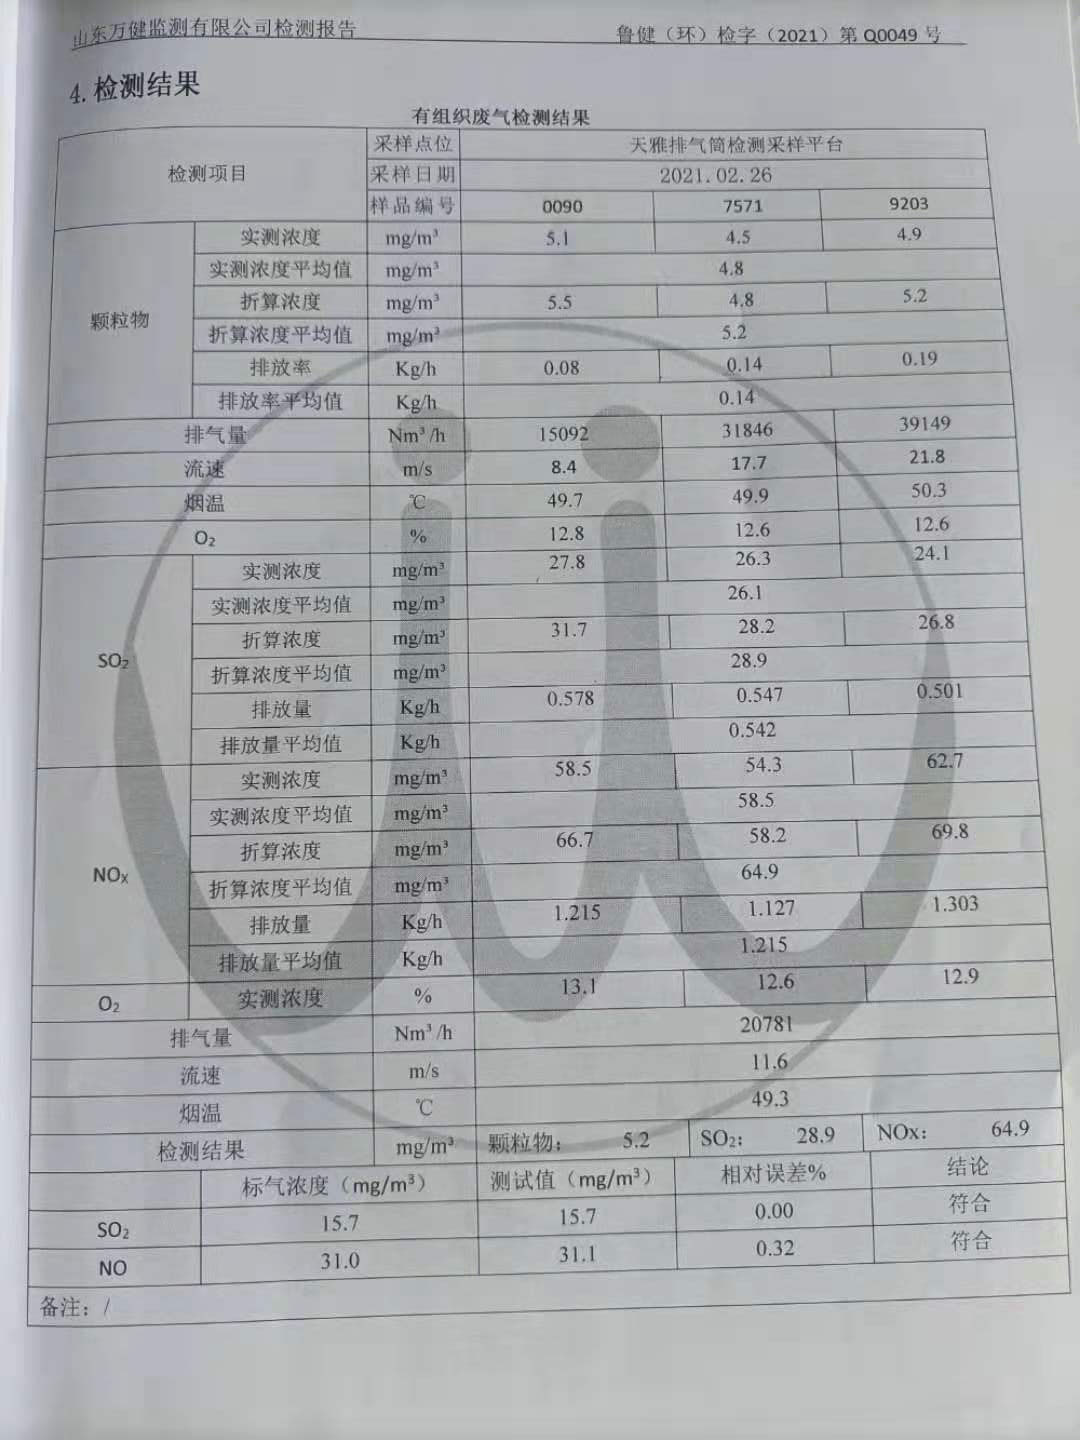 山东万健监测有限公司检测报告 鲁健（环）检字（2021）第 Q0049 号
4. 检测结果
有组织废气检测结果
检测项目 采样点位 天雅排气筒检测采样平台
采样日期 2021.02.26
样品编号 0090 7571 9203
颗粒物 实测浓度 mg/m³ 5.1 4.5 4.9
实测浓度平均值 mg/m³ 4.8
折算浓度 mg/m³ 5.5 4.8 5.2
折算浓度平均值 mg/m³ 5.2
排放率 Kg/h 0.08 0.14 0.19
排放率平均值 Kg/h 0.14
排气量 Nm³/h 15092 31846 39149
流速 m/s 8.4 17.7 21.8
烟温 ℃ 49.7 49.9 50.3
O₂ % 12.8 12.6 12.6
SO₂ 实测浓度 mg/m³ 27.8 26.3 24.1
实测浓度平均值 mg/m³ 26.1
折算浓度 mg/m³ 31.7 28.2 26.8
折算浓度平均值 mg/m³ 28.9
排放量 Kg/h 0.578 0.547 0.501
排放量平均值 Kg/h 0.542
NOx 实测浓度 mg/m³ 58.5 54.3 62.7
实测浓度平均值 mg/m³ 58.5
折算浓度 mg/m³ 66.7 58.2 69.8
折算浓度平均值 mg/m³ 64.9
排放量 Kg/h 1.215 1.127 1.303
排放量平均值 Kg/h 1.215
O₂ 实测浓度 % 13.1 12.6 12.9
排气量 Nm³/h 20781
流速 m/s 11.6
烟温 ℃ 49.3
检测结果 mg/m³ 颗粒物： 5.2 SO₂： 28.9 NOx： 64.9
标气浓度（mg/m³） 测试值（mg/m³） 相对误差% 结论
SO₂ 15.7 15.7 0.00 符合
NO 31.0 31.1 0.32 符合
备注：/